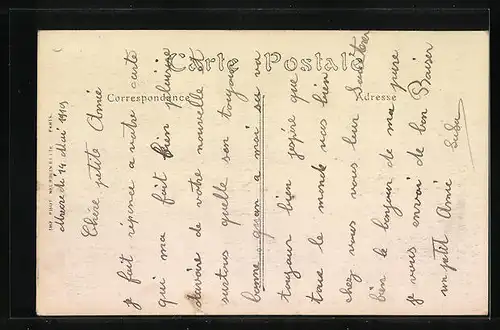 Carte Postale
Correspondance
Adresse
PARIS
le 14 Mai 1919
Chère petite Amie
je fait réponce a votre carte
qui ma fait bien plaisir
davoir de votre nouvelle et
surtous quelle son toujour
bonne quan a moi sa va
toujour bien jespère que
tous le monde vas bien
chez vous vous leur
bien le bonjour de ma par
je vous envoi de bon Baiser
un petit Amie